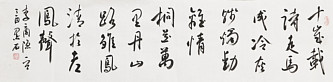 十歲裁
詩走馬
成冷灰
殘燭動
離情
桐花萬
里丹山
路雛鳳
清於老
鳳聲
李商隱